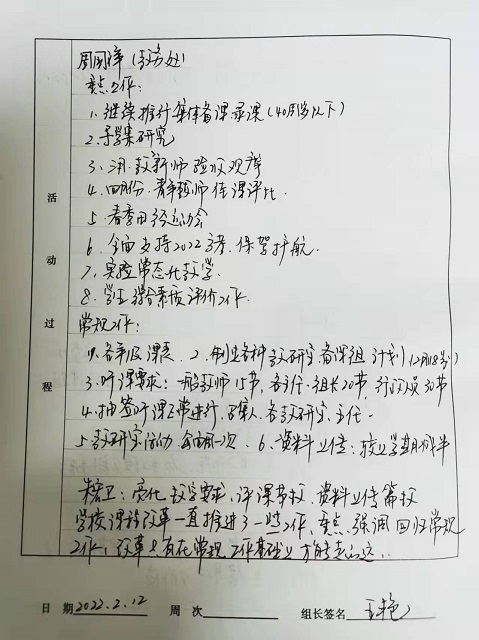 周国洋（教务处）
重点工作：
1. 继续推行集体备课录课（40周岁以下）
2. 导学案研究
3. 教新师验收观摩
4. 四月份青年教师佳课评比.
5. 春季田径运动会
6. 全面支持2022高考，保驾护航.
7. 实验常态化教学.
8. 学生综合素质评价工作.
常规工作：
1. 各年级课表. 2. 制定各科教研室、备课组计划（2月18号）
3. 听课要求：一般教师15节，各主任、组长20节，行政人员30节
4. 抽签听课正常进行，各教研室主任.
5. 教研室活动 每周一次. 6. 资料上传：较上学期
：亮化教学要求，评课节数、资料上传篇数
学校课程改革一直推进了一些工作，重点强调回归常规
工作，改革只有在常规工作基础上方能走的远..
活动过程
日 期 2022.2.12 周 次 组长签名 王艳